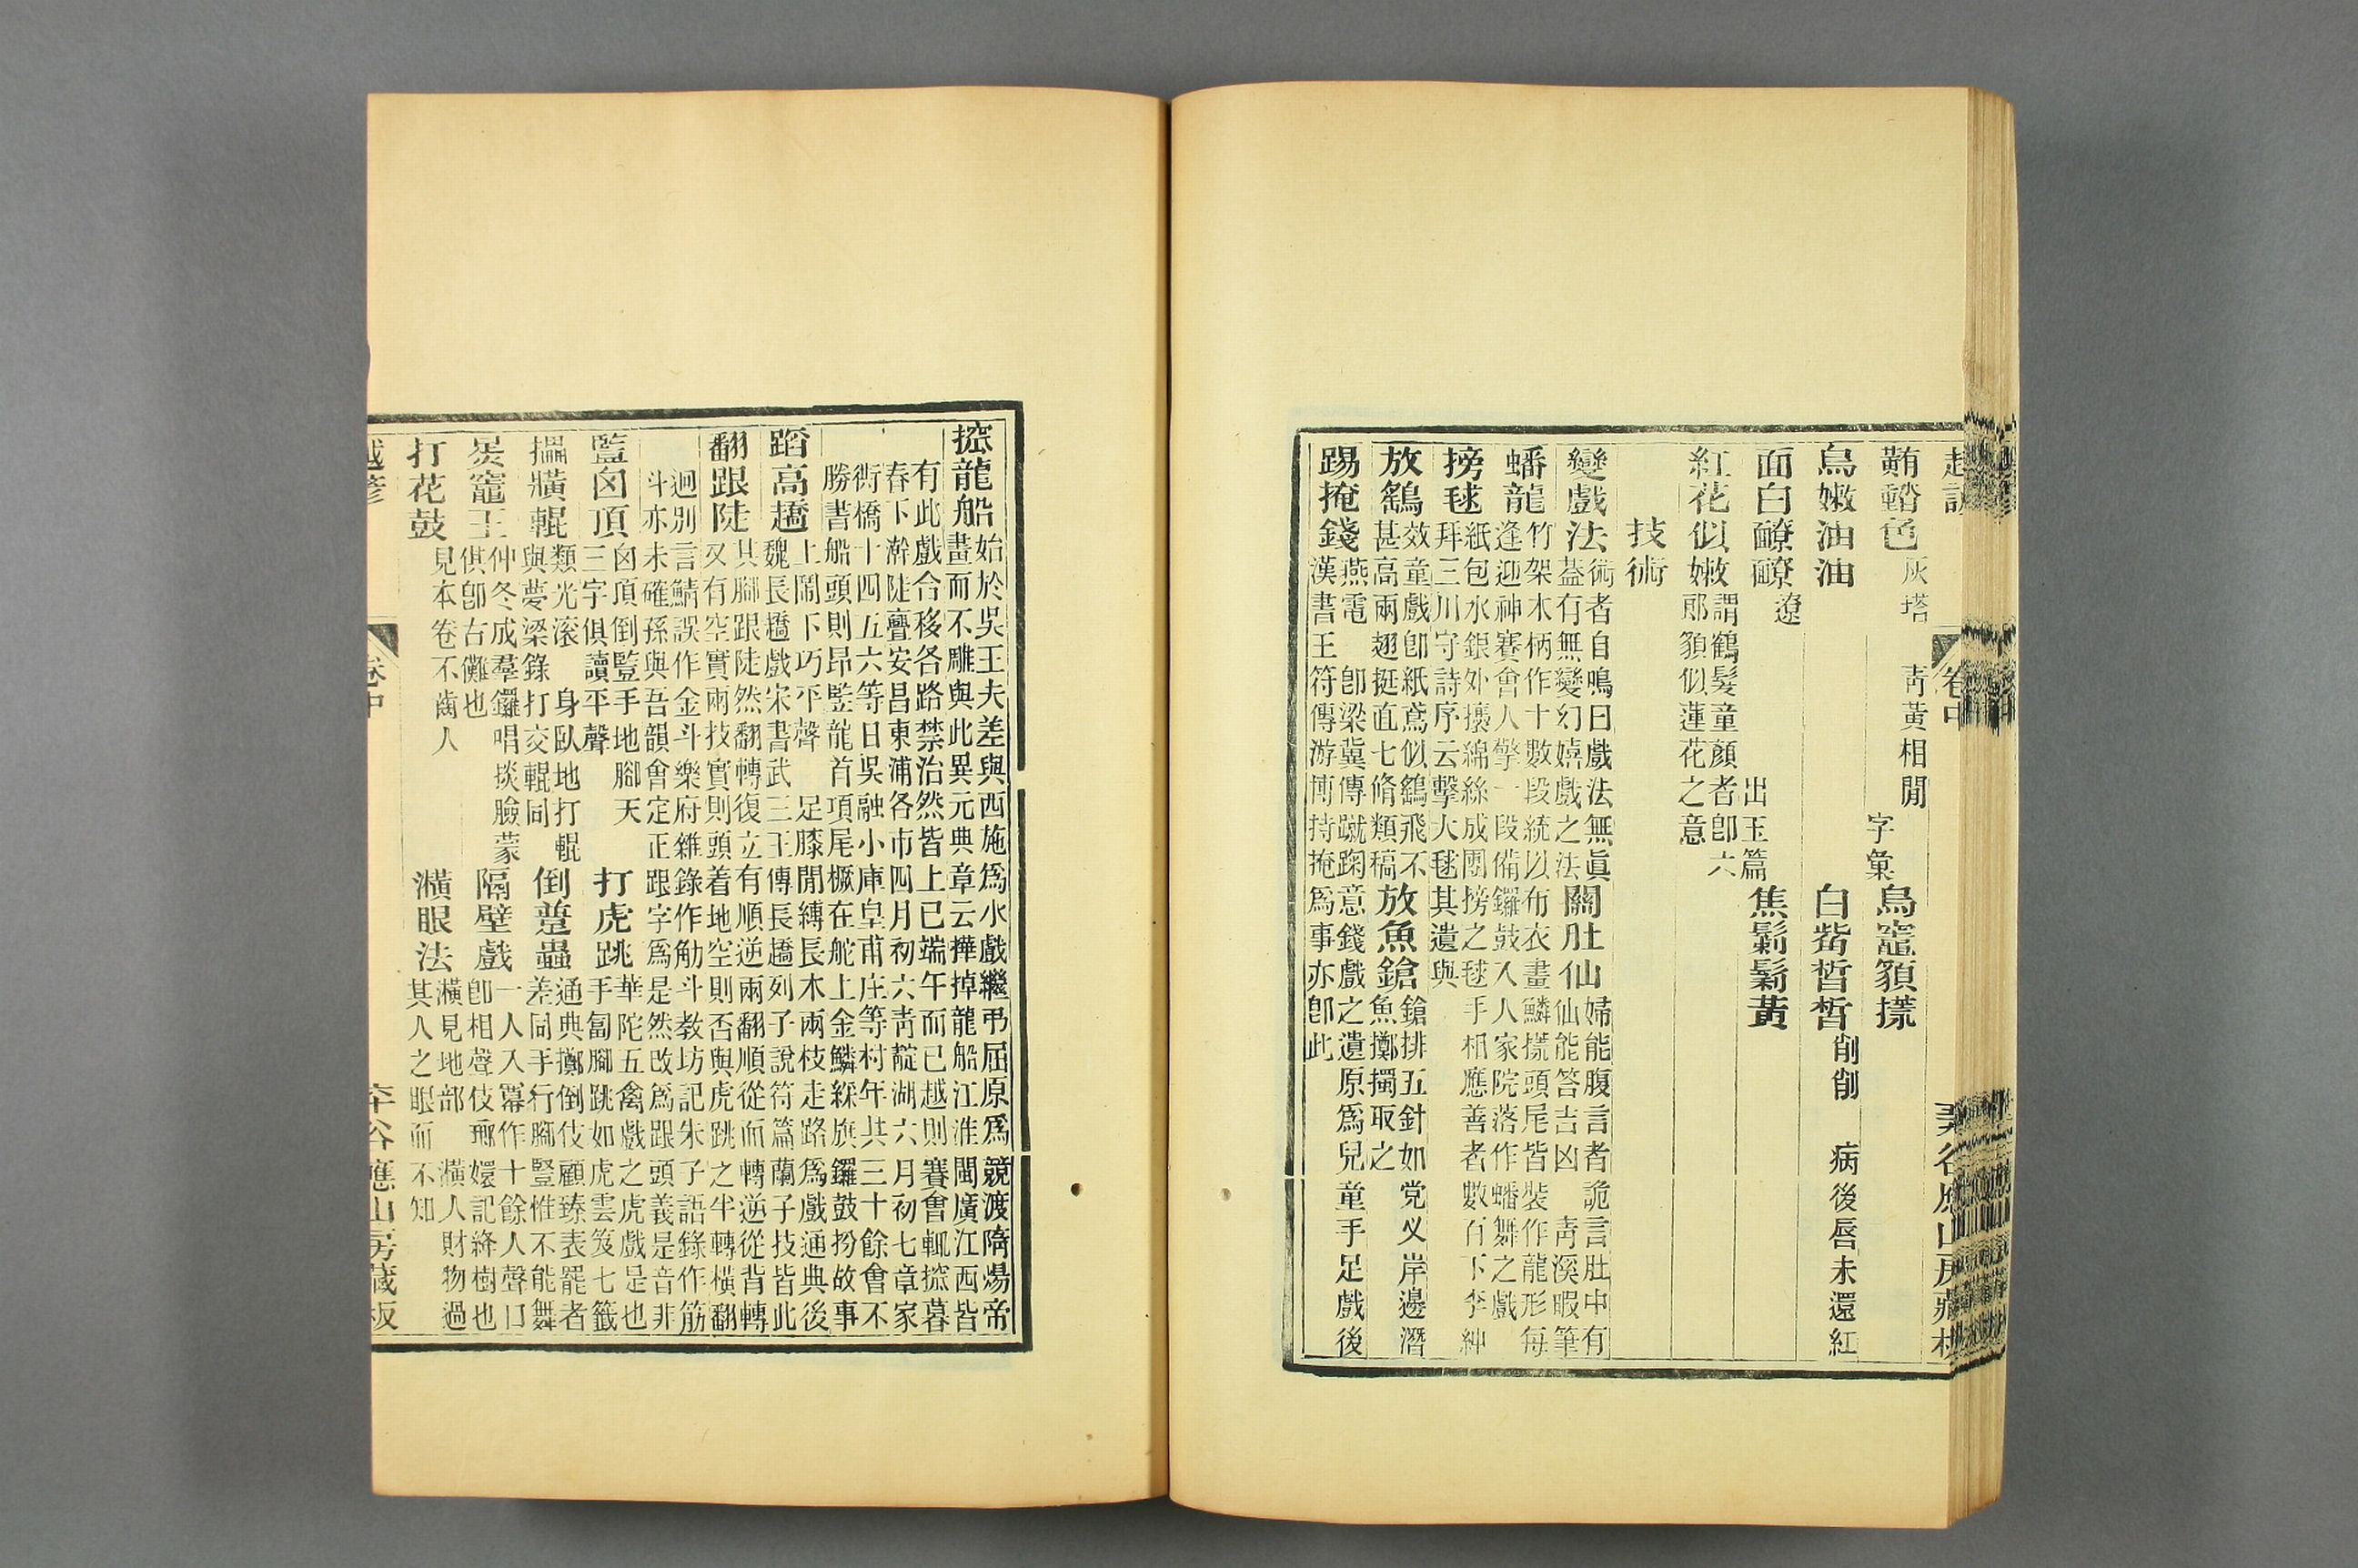 卷中
色 灰塔 青黃相間 字彙 烏竈
烏嫩油油 白皙皙 削削 病後唇未還紅
面白醥醥 出玉篇 焦黃
紅花似嫩 謂鶴髮童顏者卽六
郎貌似蓮花之意
技術
變戲法 術者自鳴曰戲法無眞
蓋有無變幻嬉戲之法 關肚仙 婦能腹言者詭言肚中有
仙能答吉凶 靑溪暇筆
蟠龍 竹架木柄作十數段統以布衣畫鱗㨪頭尾皆裝作龍形每
逢迎神賽會人擎一段備鑼鼓入人家院落作蟠舞之戲
搒毬 紙包水銀外攘綿絲成團搒之毬手相應善者數百下李紳
拜三川守詩序云擊大毬其遺與
放鷂 效童戲卽紙鳶似鷂飛不
甚高兩翅挺直七脩類稿 放魚鎗 鎗排五針如党义岸邊潛
魚擲擉取之
踢掩錢 燕電 卽梁冀傳蹴踘意錢戲之遺原爲兒童手足戲後
漢書王符傳游博持掩爲事亦卽此
龍船 始於吳王夫差與西施爲水戲繼弔屈原爲競渡隋煬帝
畫而不雕與此異元典章云 掉龍船江淮閩廣江西皆
有此戲合移各路禁治然皆上巳端午而已越則賽會輒 暮
春下澣陡亹安昌東浦各市四月初六靑靛湖六月初七章家
衖橋十四五六等日吳融小庫皇甫庄等村年共三十餘會不
勝書船頭則昂監龍首項尾橛在舵上金鱗綵旗鑼鼓扮故事
踏高蹻 上鬧下巧平聲 足膝閒縛長木兩枝走路爲戲通典後
魏長蹻戲宋書武三王傳長蹻列子說符篇蘭子技皆此
翻跟陡 其腳跟陡然翻轉復立有順逆兩翻順從而轉逆從背轉
又有空實兩技實則頭着地空則否與虎跳之半轉橫翻
迥別言鯖誤作金斗樂府雜錄作觔斗敎坊記朱子語錄作筋
斗亦未確孫與吾韻會定正跟字爲是然改爲跟頭義是音非
監囟頂 囟頂倒監手地腳天
三字俱讀平聲 打虎跳 華陀五禽戲之虎戲是也
手匐腳跳如虎雲笈七籤
輥 類光滚 身臥地打輥
與夢梁錄打交輥同 倒蟲 通典擲倒伎顧臻表罷者
差同手行腳豎惟不能舞
竈王 仲冬成羣鑼唱掞臉蒙
俱卽古儺也 隔壁戲 一人入冪作十餘人聲口
卽相聲伎嬛記絳樹也
打花鼓 見本卷不齒人 眼法 見地部 人財物過
其人之眼而不知
越諺 卷中 谷應山房藏板